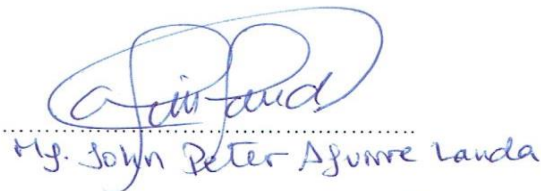 Mg. John Peter Aguirre Landa